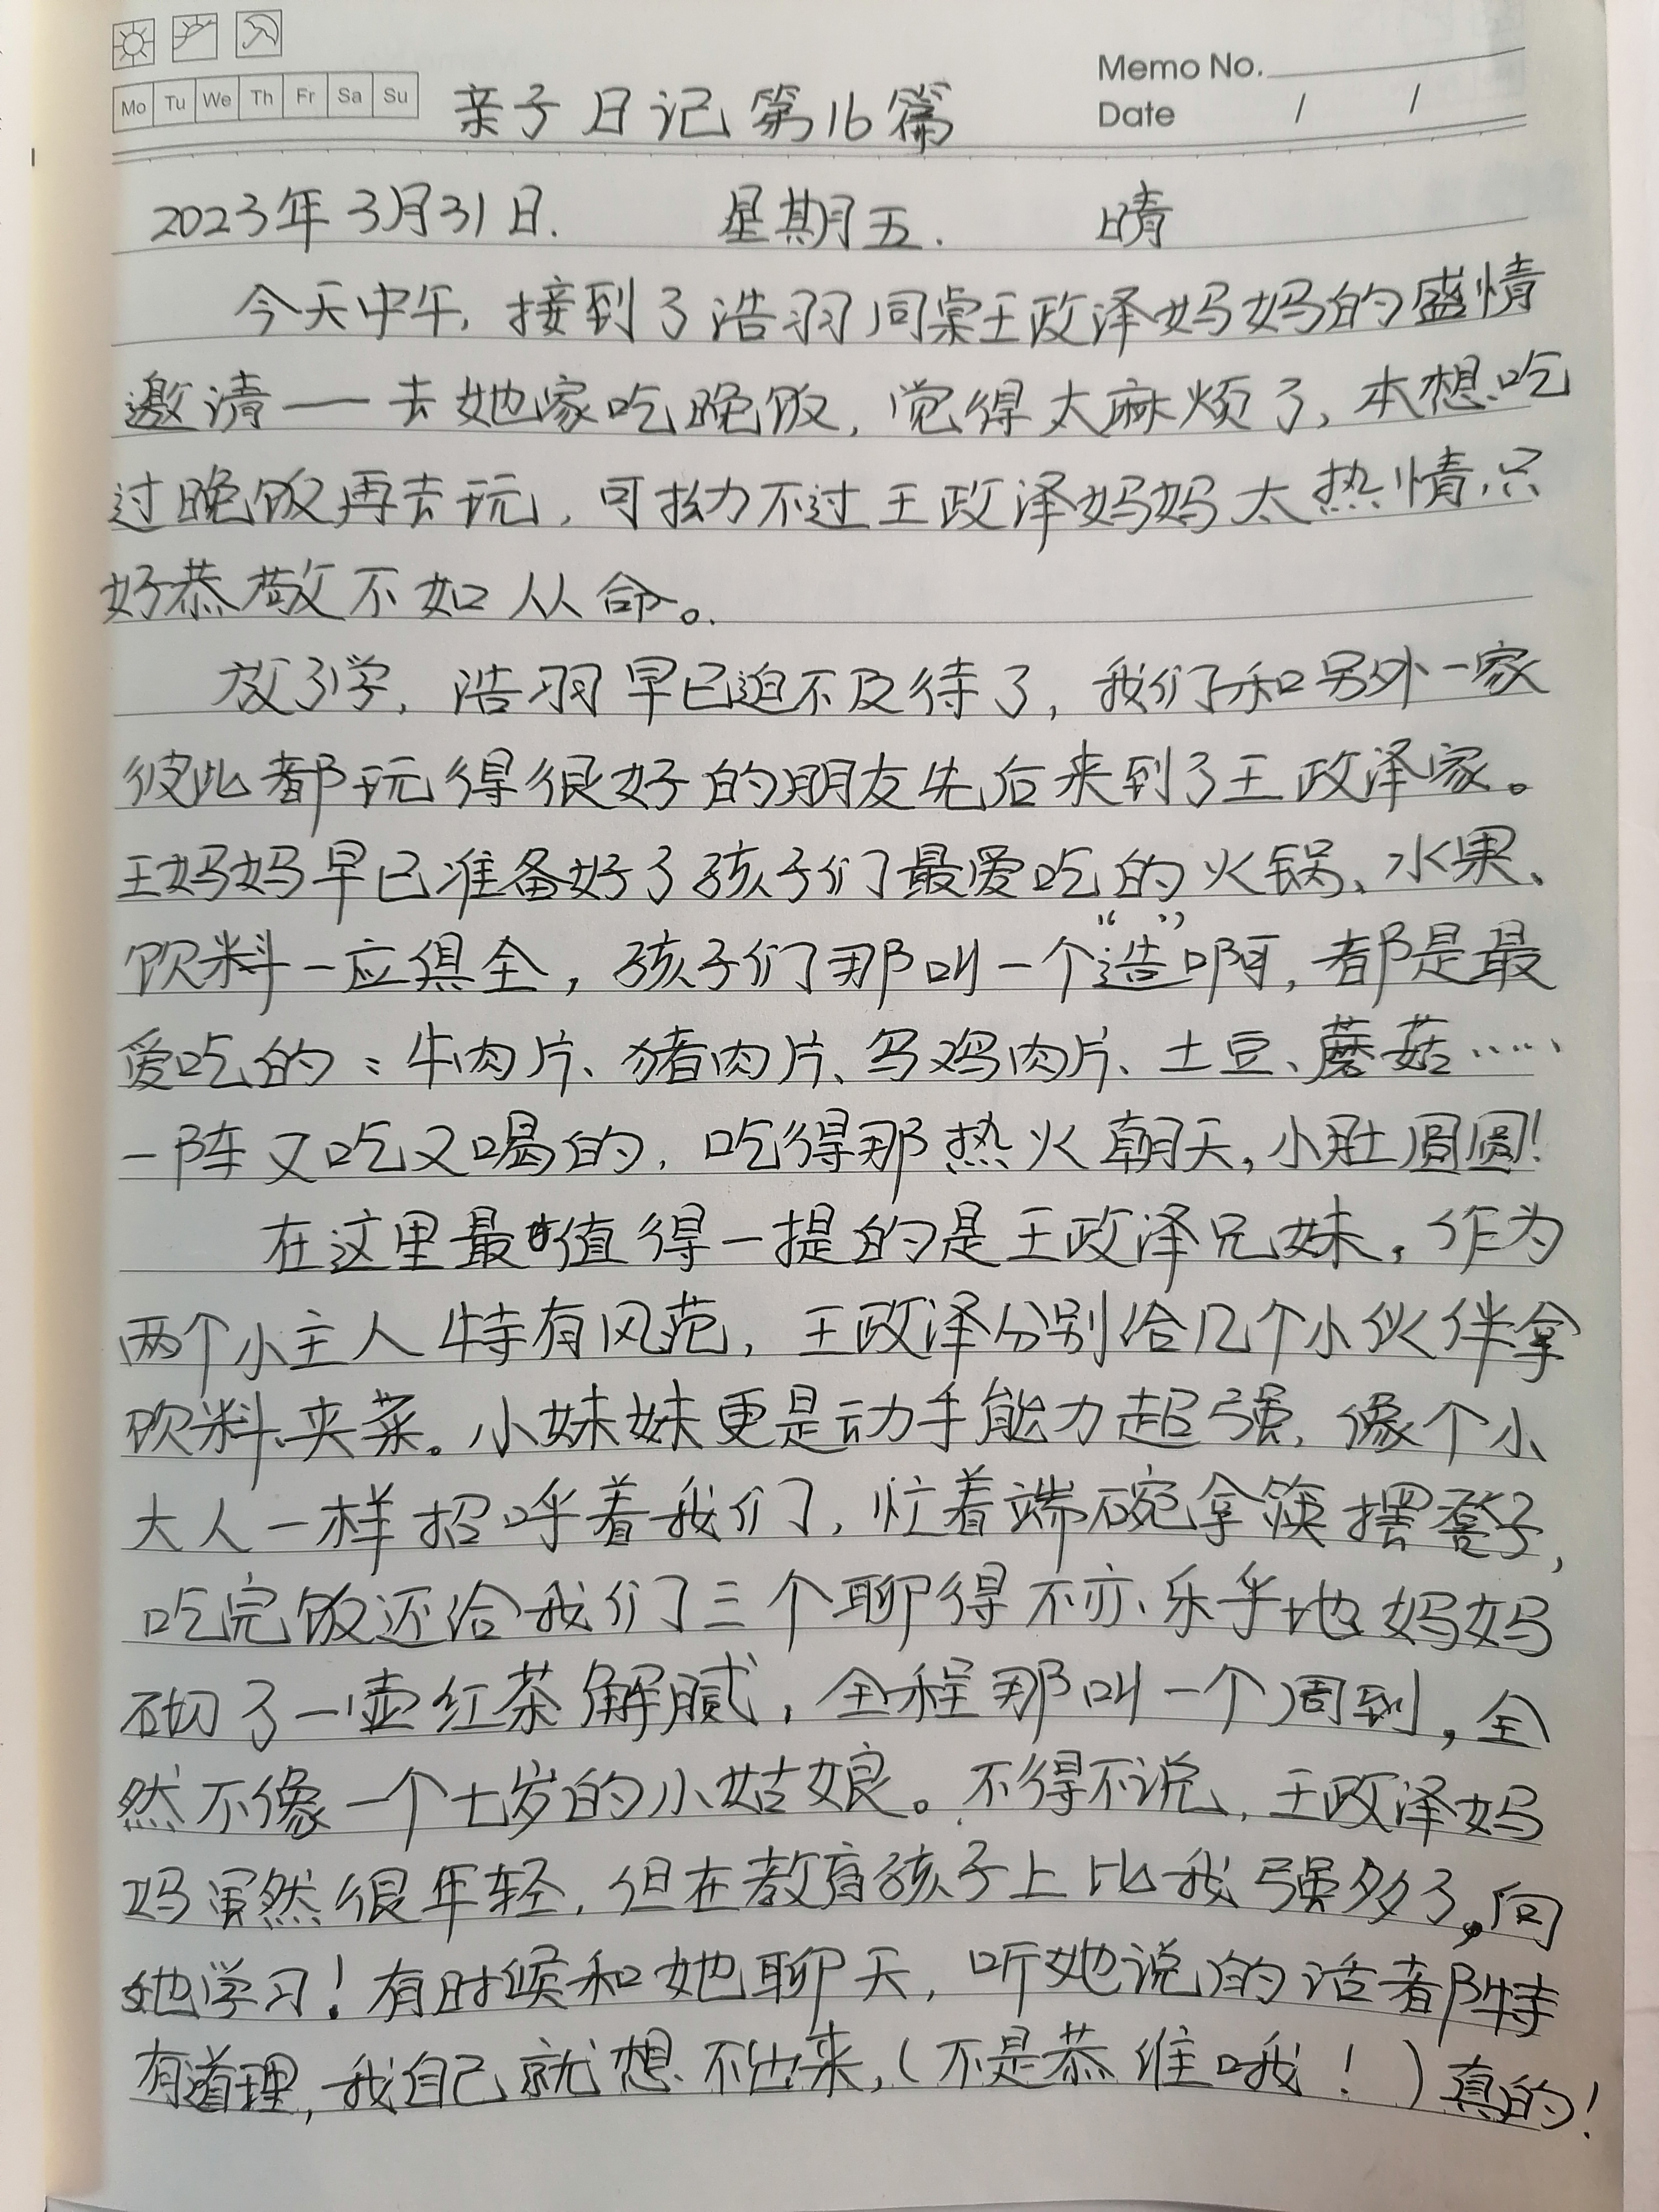 Memo No.
Mo Tu We Th Fr Sa Su
亲子日记第16篇
Date / /
2023年3月31日. 星期五. 晴
今天中午,接到了浩羽同桌王政泽妈妈的盛情
邀请——去她家吃晚饭,觉得太麻烦了,本想吃
过晚饭再去玩,可拗不过王政泽妈妈太热情,只
好恭敬不如从命。
放了学,浩羽早已迫不及待了,我们和另外一家
彼此都玩得很好的朋友先后来到了王政泽家。
王妈妈早已准备好了孩子们最爱吃的火锅、水果、
饮料一应俱全,孩子们那叫一个“造”啊,都是最
爱吃的:牛肉片、猪肉片、乌鸡肉片、土豆、蘑菇……
一阵又吃又喝的,吃得那热火朝天,小肚圆圆!
在这里最值得一提的是王政泽兄妹,作为
两个小主人特有风范,王政泽分别给几个小伙伴拿
饮料、夹菜。小妹妹更是动手能力超强,像个小
大人一样招呼着我们,忙着端碗拿筷摆凳子,
吃完饭还给我们三个聊得不亦乐乎地妈妈
砌了一壶红茶解腻,全程那叫一个周到,全
然不像一个七岁的小姑娘。不得不说,王政泽妈
妈虽然很年轻,但在教育孩子上比我强多了,向
她学习!有时候和她聊天,听她说的话都特
有道理,我自己就想不出来,(不是恭维哦!)真的!